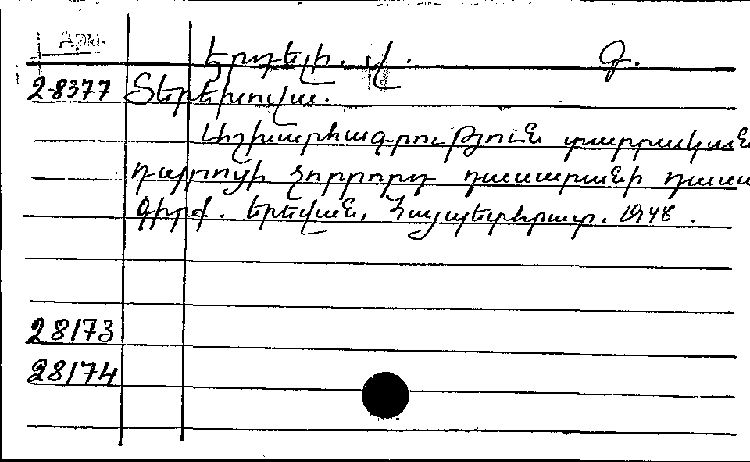 Арм.
Երդելի. Վ. Գ.
28377 Տերեխովա.
Աշխարհագրություն տարրական
դպրոցի չորրորդ դասարանի դաս
գիրք. Երևան, Հայպետհրատ. 1948.
28173
28174